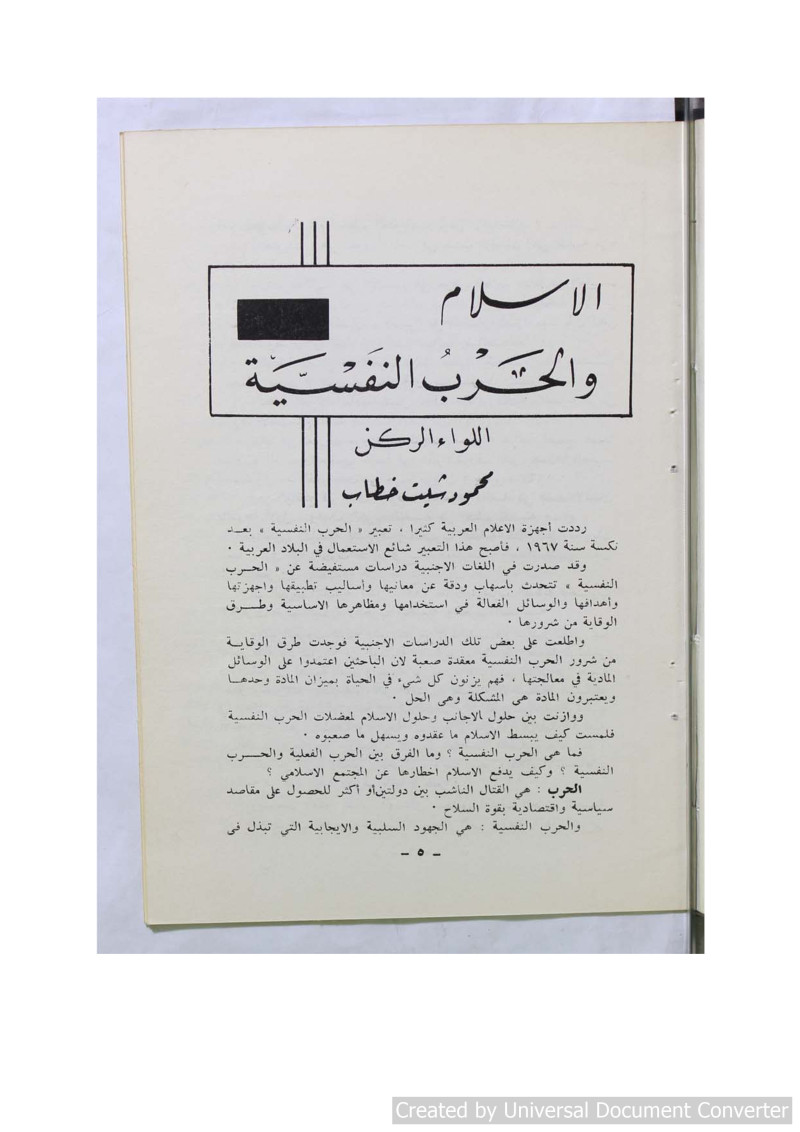 الاسلام
والحَرْبُ النفَسْيَّة
اللواء الركن
محمود شيت خطاب
رددت أجهزة الاعلام العربية كثيرا ، تعبير « الحرب النفسية » بعد
نكسة سنة ١٩٦٧ ، فأصبح هذا التعبير شائع الاستعمال في البلاد العربية .
وقد صدرت في اللغات الاجنبية دراسات مستفيضة عن « الحرب
النفسية » تتحدث باسهاب ودقة عن معانيها وأساليب تطبيقها واجهزتها
وأهدافها والوسائل الفعالة في استخدامها ومظاهرها الاساسية وطرق
الوقاية من شرورها .
واطلعت على بعض تلك الدراسات الاجنبية فوجدت طرق الوقاية
من شرور الحرب النفسية معقدة صعبة لان الباحثين اعتمدوا على الوسائل
المادية في معالجتها ، فهم يزنون كل شيء في الحياة بميزان المادة وحدها
ويعتبرون المادة هي المشكلة وهى الحل .
ووازنت بين حلول الاجانب وحلول الاسلام لمعضلات الحرب النفسية
فلمست كيف يبسط الاسلام ما عقدوه ويسهل ما صعبوه .
فما هى الحرب النفسية ؟ وما الفرق بين الحرب الفعلية والحرب
النفسية ؟ وكيف يدفع الاسلام اخطارها عن المجتمع الاسلامي ؟
الحرب : هي القتال الناشب بين دولتين أو أكثر للحصول على مقاصد
سياسية واقتصادية بقوة السلاح .
والحرب النفسية : هي الجهود السلبية والايجابية التي تبذل فى
– ٥ –
Created by Universal Document Converter